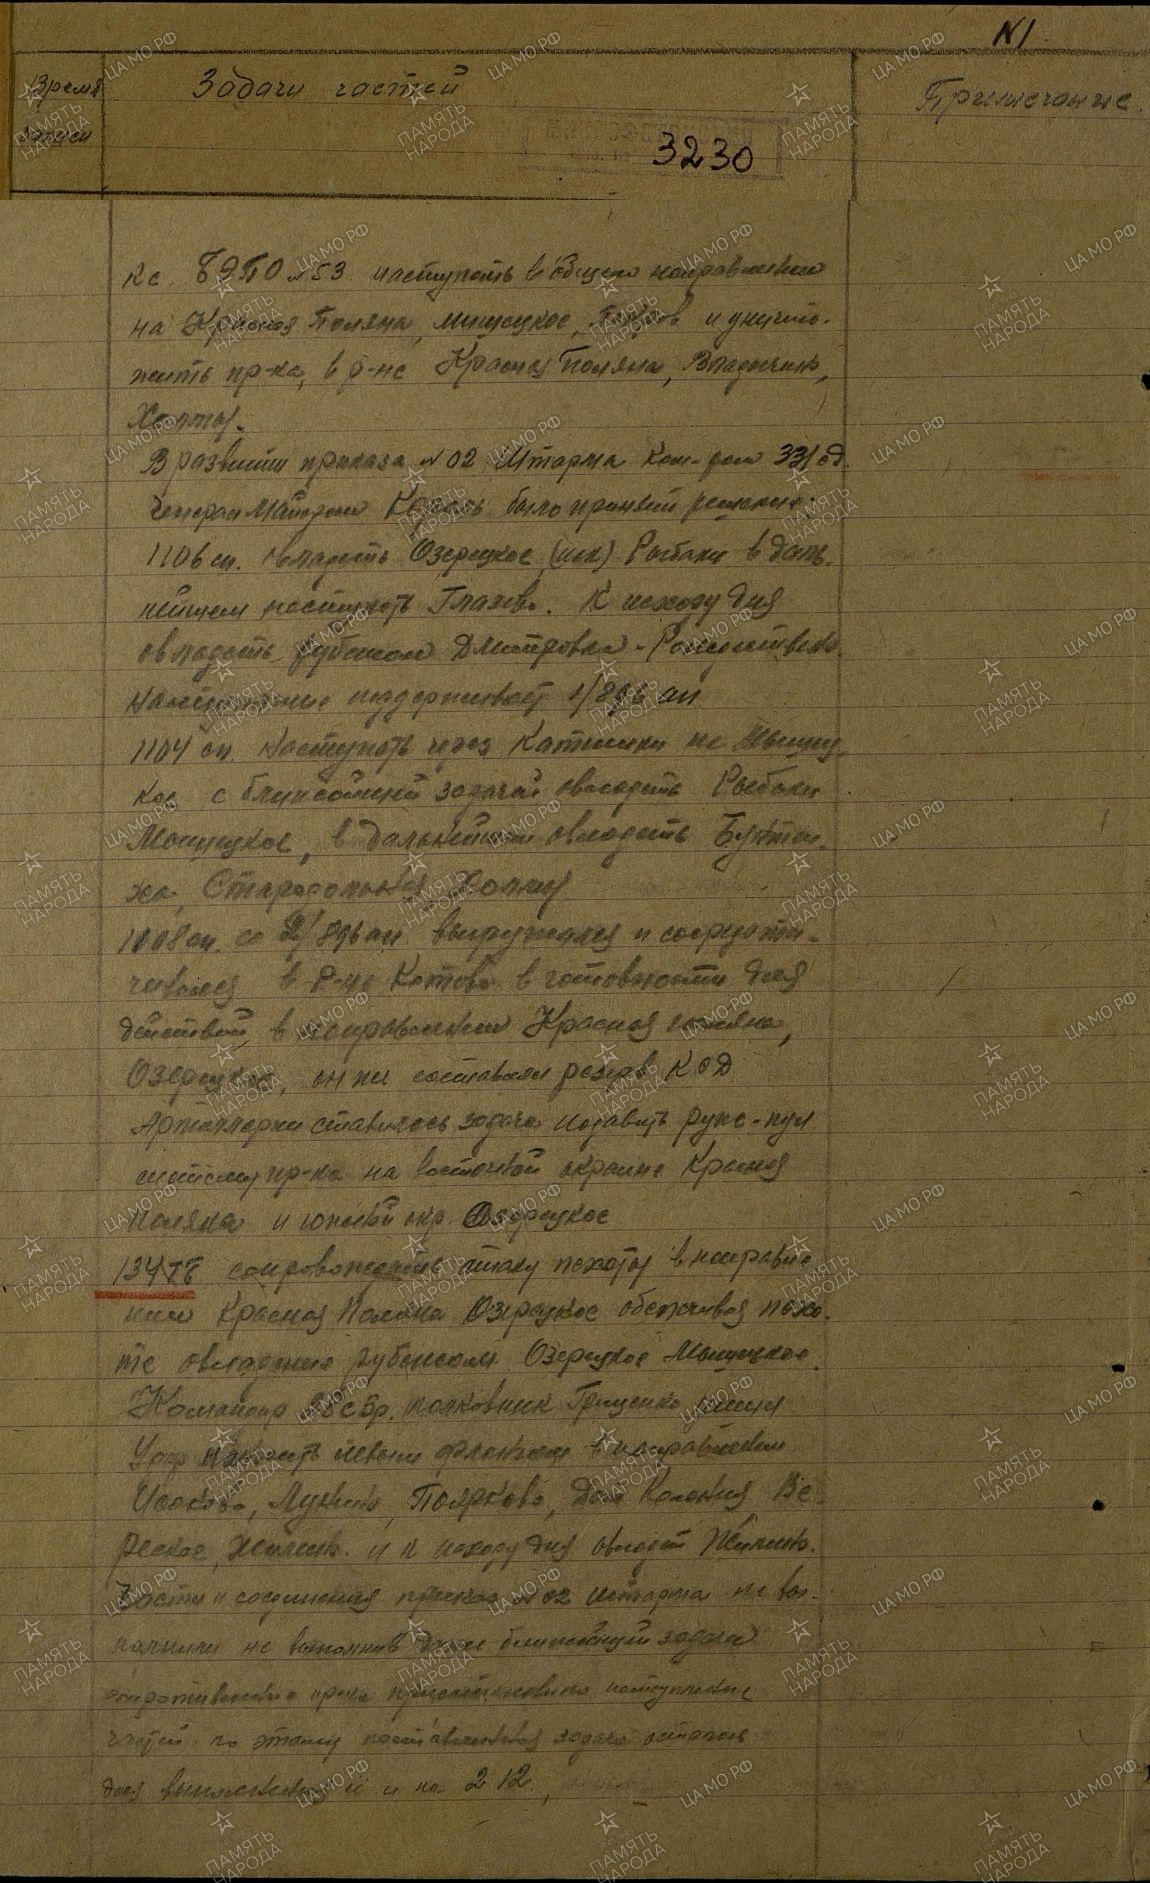 N1
Время записи
Задачи частей
Примечание.
3230
кс. БЭПО №53 наступать в общем направлении
на Красная Поляна, Мышецкое, и уничто-
жить пр-ка, в р-не Красная Поляна, Владычино,
Холмы.
В развитии приказа №02 Штарма Ком-ром 331 сд.
Генерал Майором Король было принято решение:
1106 сп. овладеть Озерецкое, (иск) Рыбаки в даль-
нейшем наступать Глазово. К исходу дня
овладеть рубежом Дмитровка - Рождествено.
Наступление поддерживает 1/896 ап
1104 сп. Наступать через Катюшки на Мышец-
кое с ближайшей задачей овладеть Рыбаки
Мышецкое, в дальнейшем овладеть
Холмы
1108 сп. со 2/896 ап. выгружался и сосредото-
чивался в р-не Катово в готовности для
действий в направлении Красная поляна,
Озерецкое, он же составлял резерв КСД
Артиллерии ставилась задача подавить руж-пул
систему пр-ка на восточной окраине Красная
Поляна и южной окр. Озерецкое
134 ТБ сопровождать атаку пехоты в направле-
нии Красная Поляна Озерецкое обеспечивая пехо-
те овладение рубежом Озерецкое Мышецкое.
Командир 28 сбр. полковник Гриценко решил
Удар наносить левым флангом в направлении
Исаково, Лунево, Поярково, Колония Ве-
решское, Жилино. и к исходу дня овладеть Жилино.
Части и соединения приказ №02 штарма не вы-
полнили не выполнив даже ближайшей задачи
сопротивление пр-ка приостановило наступление
частей по этому поставленная задача осталась
для выполнения и на 2 12,